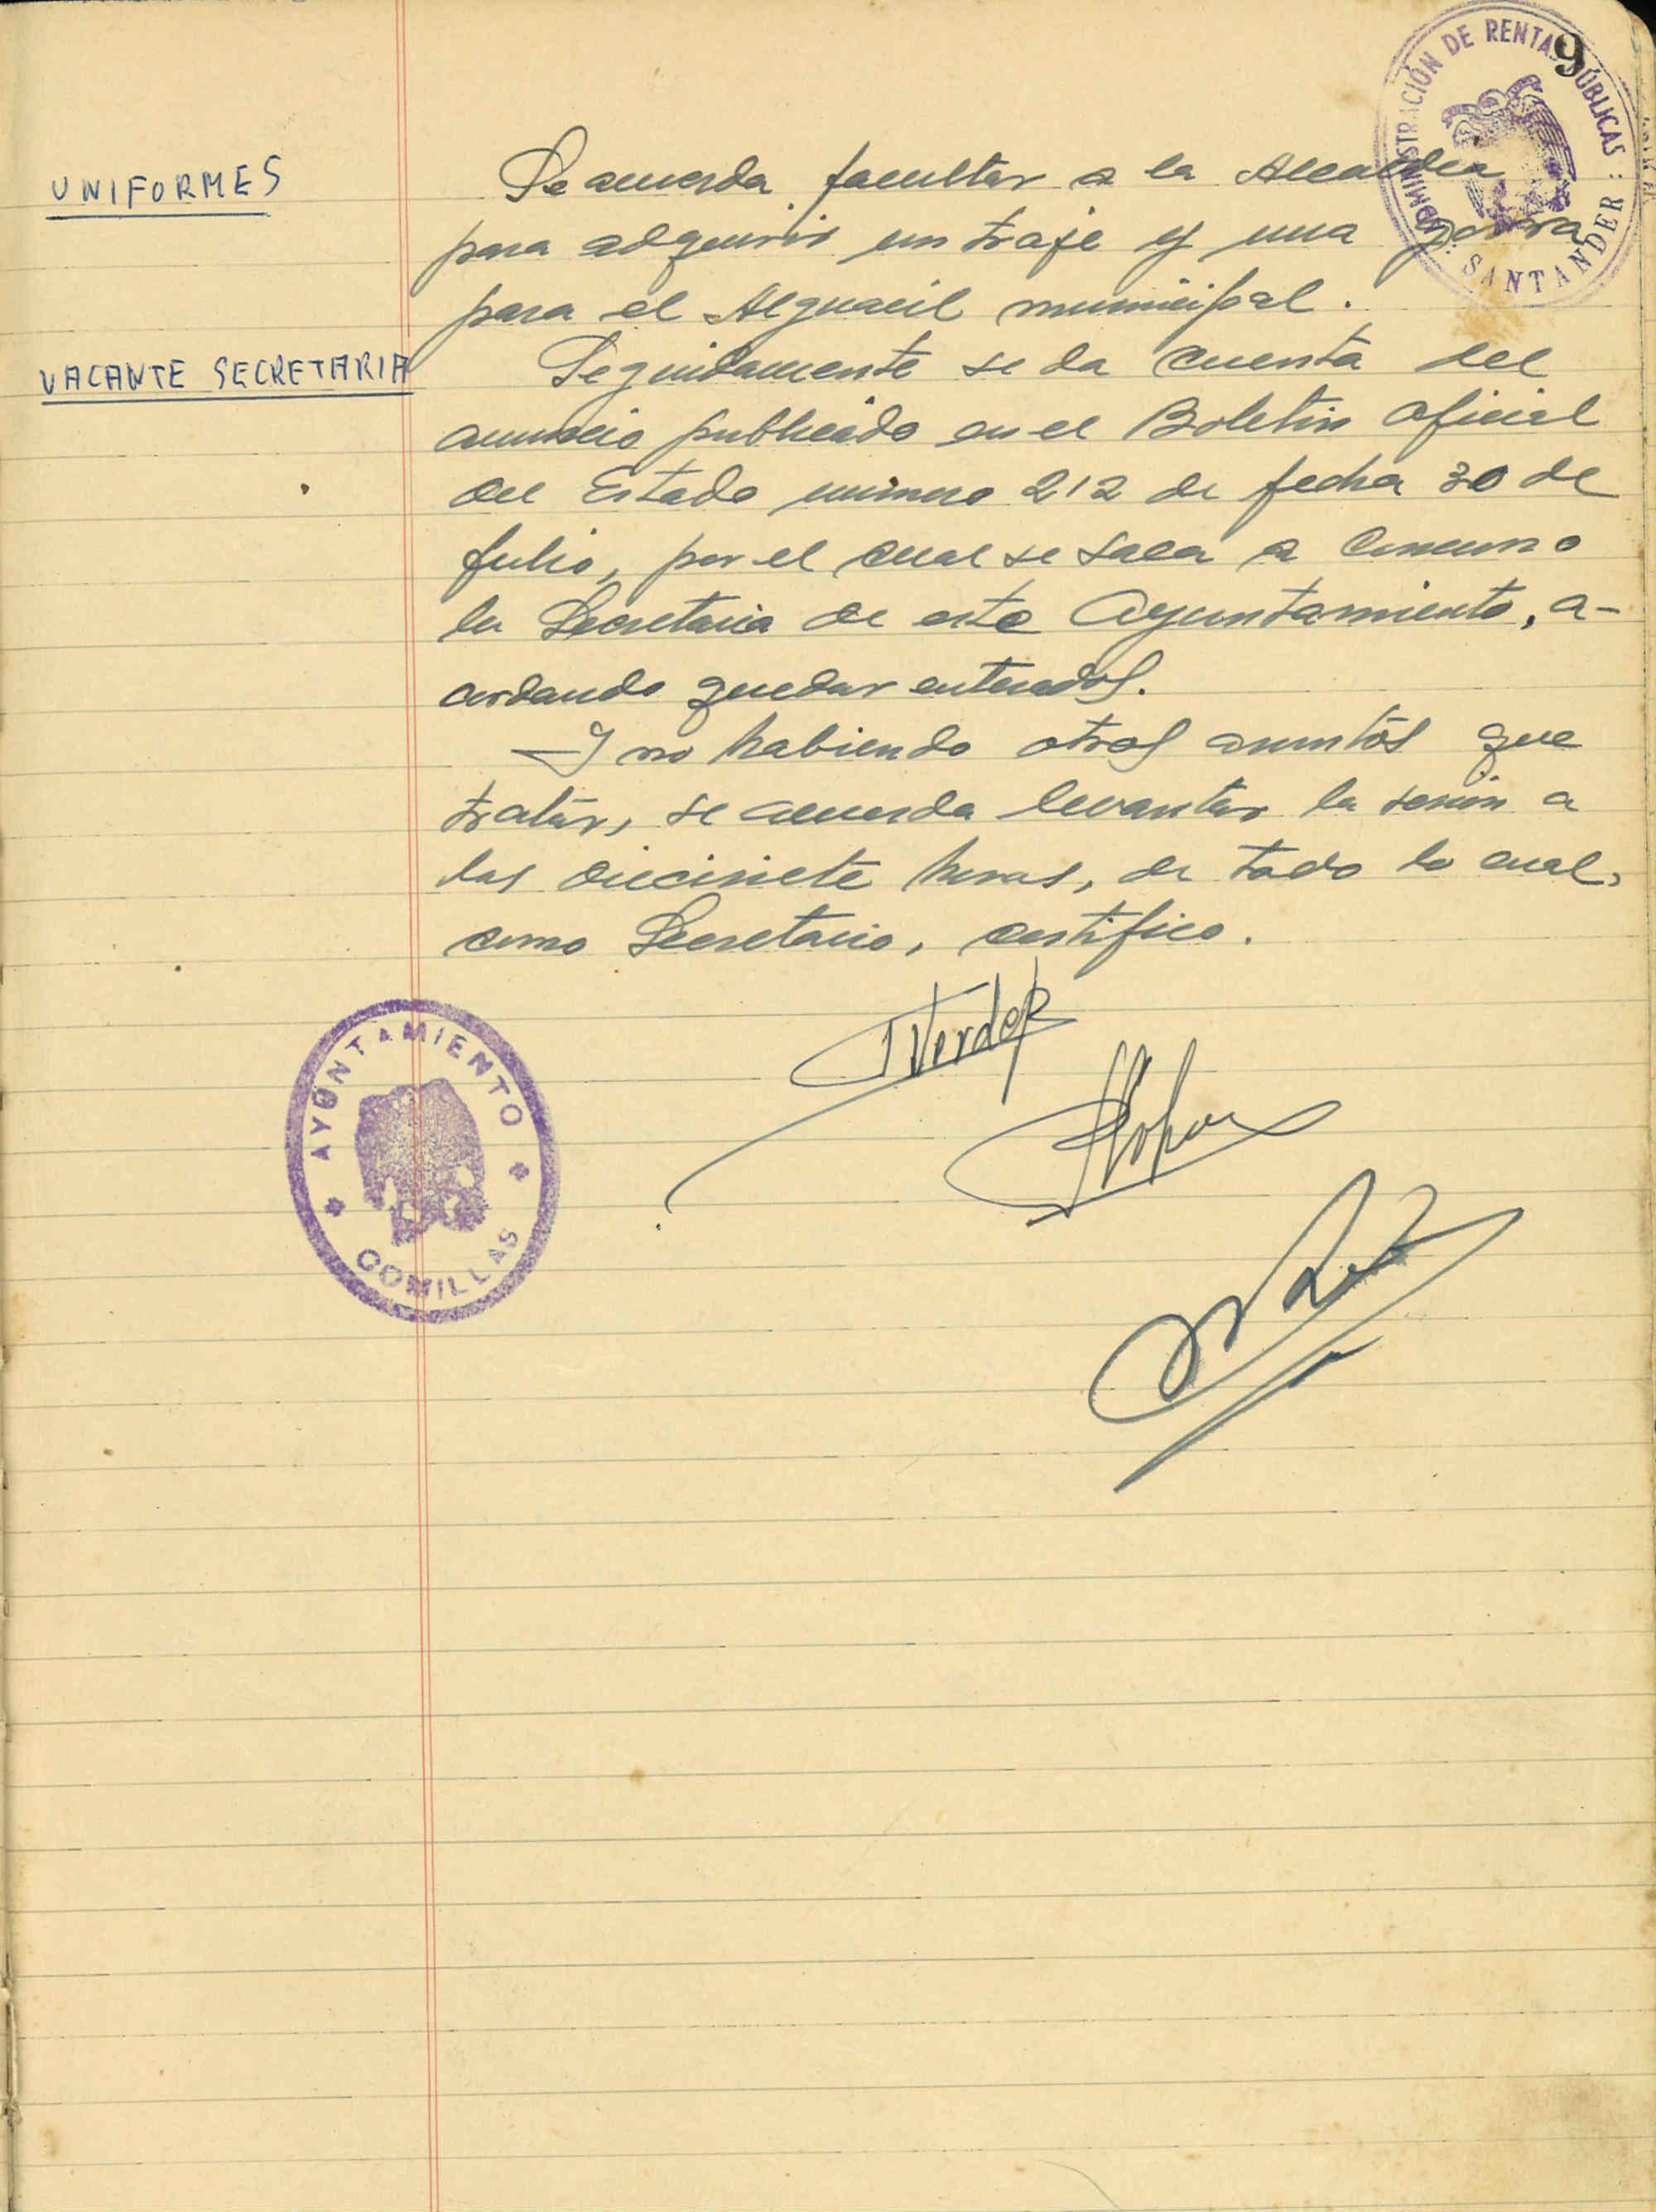 9
ADMINISTRACIÓN DE RENTAS PÚBLICAS : SANTANDER :
UNIFORMES
Se acuerda facultar a la Alcaldia
para adquirir un traje y una gorra
para el Alguacil municipal.
VACANTE SECRETARIA
Seguidamente se da cuenta del
anuncio publicado en el Boletin Oficial
del Estado numero 212 de fecha 30 de
julio, por el cual se saca a Concurso
la Secretaria de este Ayuntamiento, a-
cordando quedar enterados.
Y no habiendo otros asuntos que
tratar, se acuerda levantar la sesión a
las diecisiete horas, de todo lo cual,
como Secretario, certifico.
AYUNTAMIENTO
COMILLAS